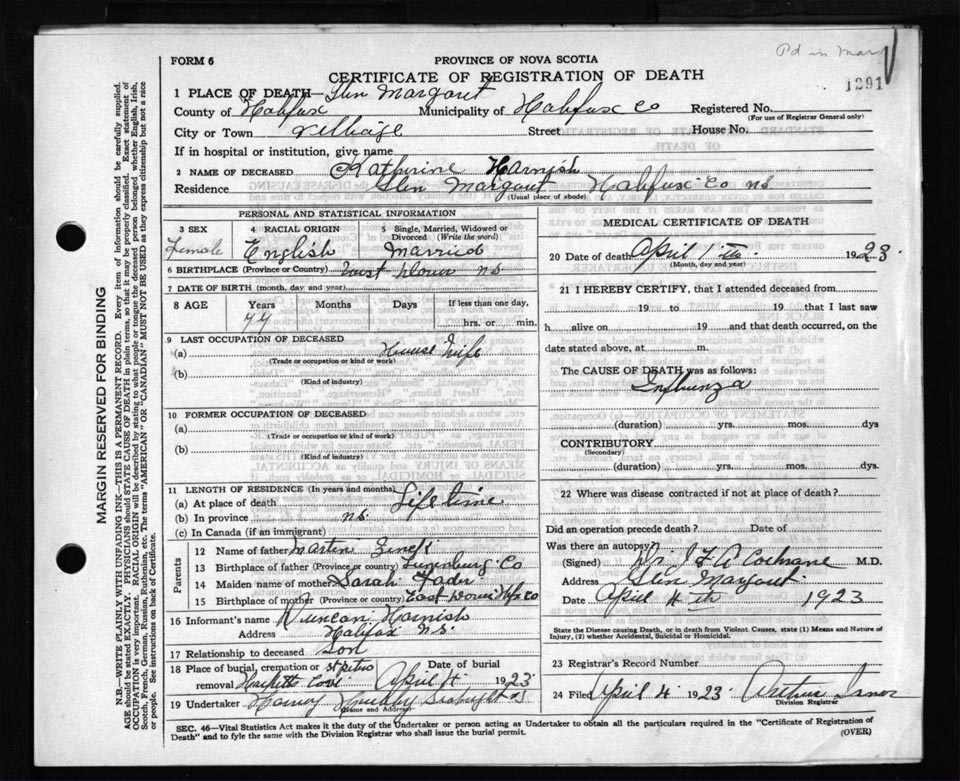 Pd in Mar
1291
FORM 6
PROVINCE OF NOVA SCOTIA
CERTIFICATE OF REGISTRATION OF DEATH
1 PLACE OF DEATH— Glen Margaret
County of Halifax Municipality of Halifax Co Registered No.
(For use of Registrar General only)
City or Town village Street House No.
If in hospital or institution, give name
2 NAME OF DECEASED Kathirine Harnish
Residence Glen Margaret Halifax Co ns
(Usual place of abode)
PERSONAL AND STATISTICAL INFORMATION
3 SEX 4 RACIAL ORIGIN 5 Single, Married, Widowed or
Divorced (Write the word)
Female English Married
6 BIRTHPLACE (Province or Country) Dover ns
7 DATE OF BIRTH (month, day and year)
8 AGE Years Months Days If less than one day,
44 hrs. or min.
9 LAST OCCUPATION OF DECEASED
(a) House Wife
(Trade or occupation or kind or work)
(b)
(Kind of industry)
10 FORMER OCCUPATION OF DECEASED
(a)
(Trade or occupation or kind of work)
(b)
(Kind of industry)
11 LENGTH OF RESIDENCE (In years and months)
(a) At place of death Life time
(b) In province ns
(c) In Canada (if an immigrant)
Parents
12 Name of father Martin
13 Birthplace of father (Province or country) Lunenburg Co
14 Maiden name of mother Sarah Fader
15 Birthplace of mother (Province or country) East Dover Hfx Co
16 Informant's name Duncan Harnish
Address Halifax ns.
17 Relationship to deceased Son
18 Place of burial, cremation or st peters Date of burial
removal Hacketts Cove April 4 1923
19 Undertaker Seabright ns
(Name and Address)
MEDICAL CERTIFICATE OF DEATH
20 Date of death April 1 1923.
(Month, day and year)
21 I HEREBY CERTIFY, that I attended deceased from
19 to 19 that I last saw
h alive on 19 and that death occurred, on the
date stated above, at m.
The CAUSE OF DEATH was as follows:
Influenza
(duration) yrs. mos. dys
CONTRIBUTORY
(Secondary)
(duration) yrs. mos. dys.
22 Where was disease contracted if not at place of death?
Did an operation precede death? Date of
Was there an autopsy?
(Signed) Dr J F A Cochrane M.D.
Address Glen Margaret.
Date April 4th 1923
State the Disease causing Death, or in death from Violent Causes, state (1) Means and Nature of
Injury, (2) whether Accidental, Suicidal or Homicidal.
23 Registrar's Record Number
24 Filed April 4 1923 Arthur
Division Registrar
SEC. 46—Vital Statistics Act makes it the duty of the Undertaker or person acting as Undertaker to obtain all the particulars required in the "Certificate of Registration of
Death" and to fyle the same with the Division Registrar who shall issue the burial permit.
(OVER)
MARGIN RESERVED FOR BINDING
N.B.—WRITE PLAINLY WITH UNFADING INK—THIS IS A PERMANENT RECORD. Every item of information should be carefully supplied.
AGE should be stated EXACTLY. PHYSICIANS should STATE CAUSE OF DEATH in plain terms, so that it may be properly classified. Exact statement of
OCCUPATION is very important. RACIAL ORIGIN will be described by stating to what people or tongue the deceased person belonged whether English, Irish,
Scotch, French, German, Russian, Ruthenian, etc. The terms "AMERICAN" or "CANADIAN" MUST NOT BE USED as they express citizenship but not a race
or people. See instructions on back of Certificate.